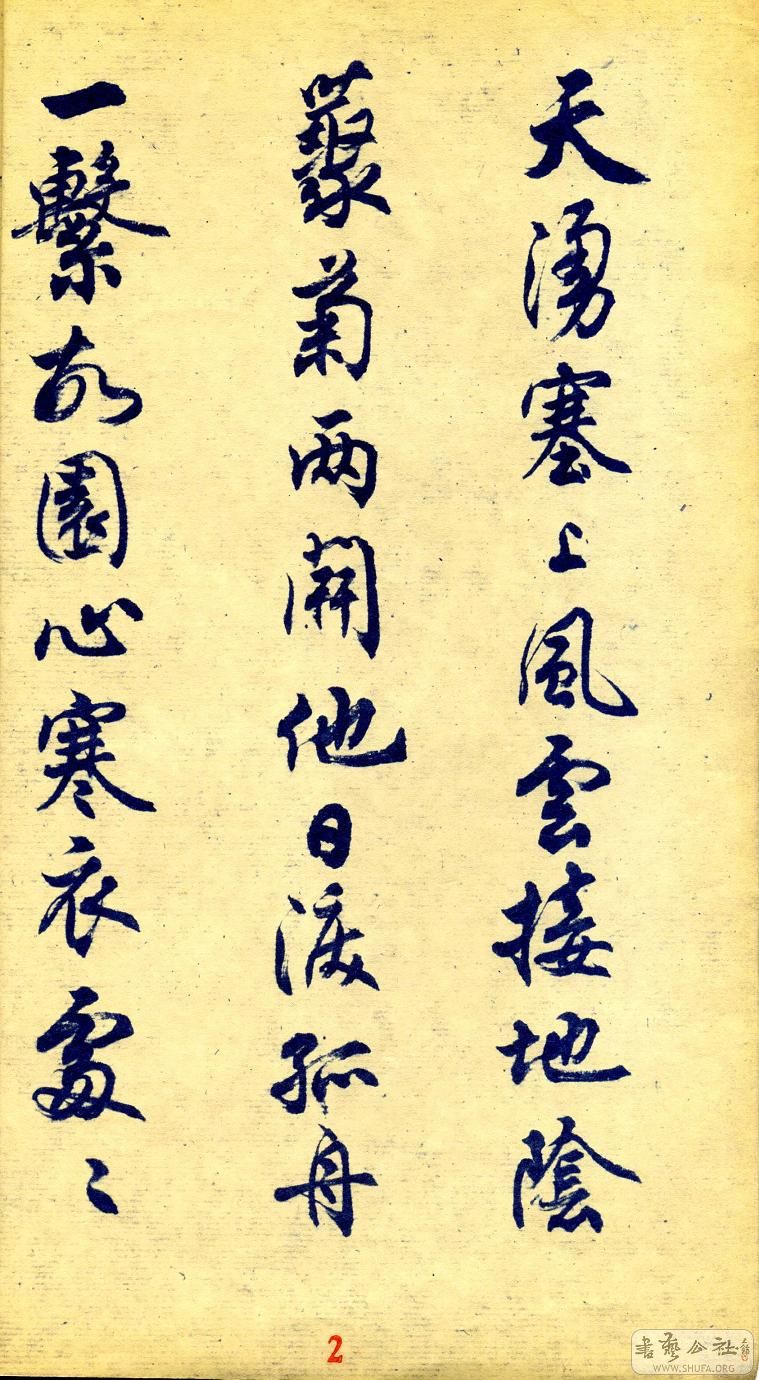 天湧塞上風雲接地陰
叢菊兩開他日淚孤舟
一繫故園心寒衣處〻
2
書藝公社
WWW.SHUFA.ORG